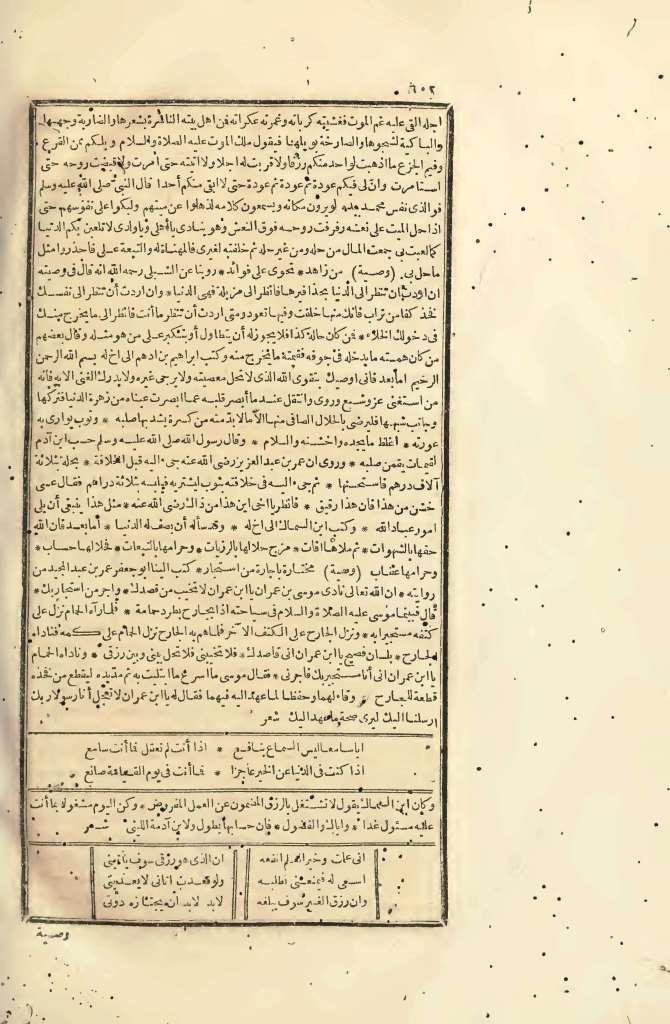 ٦٠٢
اجله التى عليه غم الموت فغشيته كرباته وغمرته عكراته فمن أهل بيته الناشرة بشعرها والضاربة وجهها
والباكية لشجوها والصارخة بويلها فيقول ملك الموت عليه الصلاة والسلام ويلكم مم الفزع
وفيم الجزع ما أذهبت لواحد منكم رزقا ولا قربت له أجلا ولا أتيته حتى أمرت ولا قبضت روحه حتى
استأمرت وان لى فيكم عودة ثم عودة ثم عودة حتى لا أبقى منكم أحدا قال النبي صلى الله عليه وسلم
فوالذى نفس محمد بيده لو يرون مكانه ويسمعون كلامه لذهلوا عن ميتهم ولبكوا على نفوسهم حتى
اذا حمل الميت على نعشه رفرفت روحه فوق النعش وهو ينادى يا أهلى ويا ولدى لا تلعبن بكم الدنيا
كما لعبت بى جمعت المال من حله ومن غير حله ثم خلفته لغيرى فالمهناة له والتبعة على فاحذروا مثل
ما حل بى (وصية) من زاهد * تحوى على فوائد * روينا عن الشبلى رحمه الله انه قال فى وصيته
ان أردت أن تنظر الى الدنيا بحذافيرها فانظر الى مزبلة فهى الدنيا * وان أردت أن تنظر الى نفسك
فخذ كفا من تراب فانك منها خلقت وفيها تعود ومتى أردت أن تنظر ما أنت فانظر الى ما يخرج منك
فى دخولك الخلاء * فمن كان حاله كذا فلا يجوز له أن يتطاول أو يتكبر على من هو مثله وقال بعضهم
من كان همته ما يدخله فى جوفه فقيمته ما يخرج منه وكتب ابراهيم بن ادهم الى اخ له بسم الله الرحمن
الرحيم أما بعد فانى أوصيك بتقوى الله الذى لا تحل معصيته ولا يرجى غيره ولا يدرك الغنى الا به فانه
من استغنى عز وشبع وروى وانتقل عندما أبصر قلبه عما ابصرت عيناه من زهرة الدنيا فتركها
وجانب شبهها فليرضى بالحلال الصافى منها الا ما لا بد منه من كسرة يشد بها صلبه * وثوب يوارى به
عورته * اغلظ ما يجده واخشنه والسلام * وقال رسول الله صلى الله عليه وسلم حسب ابن آدم
لقيمات يقمن صلبه * وروى ان عمر بن عبد العزيز رضى الله عنه جىء اليه قبل الخلافة * بحلة بثلاثة
آلاف درهم فاستخشنها * ثم جىء اليه فى خلافته بثوب اشترى له بثلاثة دراهم فقال عسى
خشن من هذا فان هذا رقيق * فانظر يا اخى اين هذا من ذاك رضى الله عنه * مثل هذا ينبغى أن يلى
امور عباد الله * وكتب ابن السماك الى اخ له * وقد سأله أن يصف له الدنيا * أما بعد فان الله
حفها بالشهوات * ثم ملأها آفات * مزج حلالها بالرزيات * وحرامها بالتبعات * فحلالها حساب *
وحرامها عقاب (وصية) مختارة باجارة من استجار * كتب الينا أبو جعفر عمر بن عبد المجيد من
روايته * ان الله تعالى نادى موسى بن عمران يا ابن عمران لا تخيب من قصدك * وأجر من استجار بك *
قال فبينما موسى عليه الصلاة والسلام فى سياحته اذا بجارح يطرد حمامة * فلما رآه الحمام نزل على
كتفه مستجيرا به * ونزل الجارح على الكتف الآخر فلما هم به الجارح نزل الحمام على كمه فناداه
الجارح * بلسان فصيح يا ابن عمران انى قاصدك * فلا تخيبنى فلا تحل بينى وبين رزقى * وناداه الحمام
يا ابن عمران انى أنا مستجير بك فأجرنى * فقال موسى ما أسرع ما ابتليت به ثم مد يده ليقطع من فخذه
قطعة للجارح وفاء لهما وحفظا لما عهد اليه فيهما فقال له يا ابن عمران لا تعجل أنا رسولا ربك
ارسلنا اليك ليرى صحة ما عهد اليك شعر
أيا سامعا ليس السماع بنافع * اذا أنت لم تفعل فما أنت سامع
اذا كنت فى الدنيا عن الخير عاجزا * فما أنت فى يوم القيامة صانع
وكان ابن السماك يقول لا تشتغل بالرزق المضمون عن العمل المفروض * وكن اليوم مشغولا بما أنت
عليه مسئول غدا * واياك والفضول * فان حسابها يطول ولابن أذينة الليثى شعر
انى علمت وخير العلم انفعه ان الذى هو رزقى سوف يأتينى
اسعى له فيعنينى تطلبه ولو قعدت أتانى لا يعنينى
وان رزق الغير سوف يبلغه لابد لابد ان يجتازه دونى
وصية